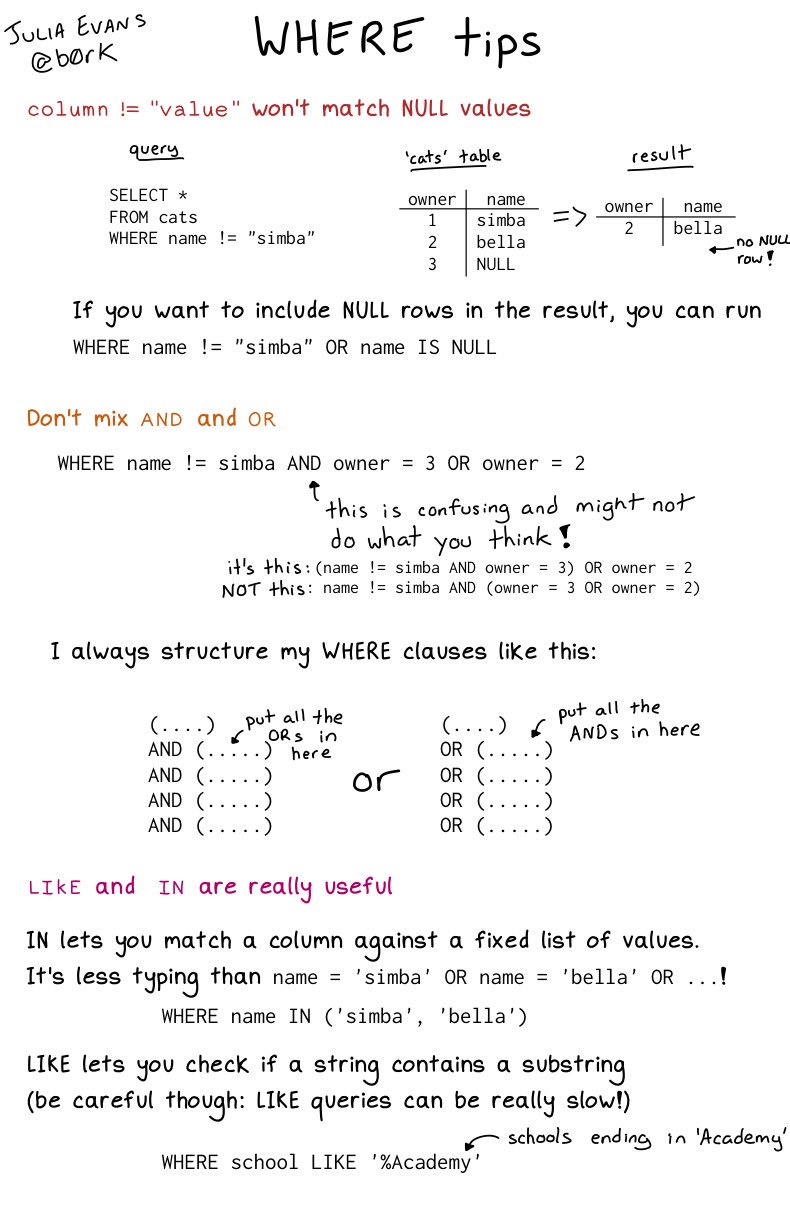 JULIA EVANS
@b0rk
WHERE tips
column != "value" won't match NULL values
query
SELECT *
FROM cats
WHERE name != "simba"
'cats' table
owner name
1 simba
2 bella
3 NULL
=>
result
owner name
2 bella
no NULL
row!
If you want to include NULL rows in the result, you can run
WHERE name != "simba" OR name IS NULL
Don't mix AND and OR
WHERE name != simba AND owner = 3 OR owner = 2
this is confusing and might not
do what you think!
it's this: (name != simba AND owner = 3) OR owner = 2
NOT this: name != simba AND (owner = 3 OR owner = 2)
I always structure my WHERE clauses like this:
(....)
AND (.....)
AND (.....)
AND (.....)
AND (.....)
put all the
ORs in
here
or
(....)
OR (.....)
OR (.....)
OR (.....)
OR (.....)
put all the
ANDs in here
LIkE and IN are really useful
IN lets you match a column against a fixed list of values.
It's less typing than name = 'simba' OR name = 'bella' OR ...!
WHERE name IN ('simba', 'bella')
LIKE lets you check if a string contains a substring
(be careful though: LIKE queries can be really slow!)
schools ending in 'Academy'
WHERE school LIKE '%Academy'